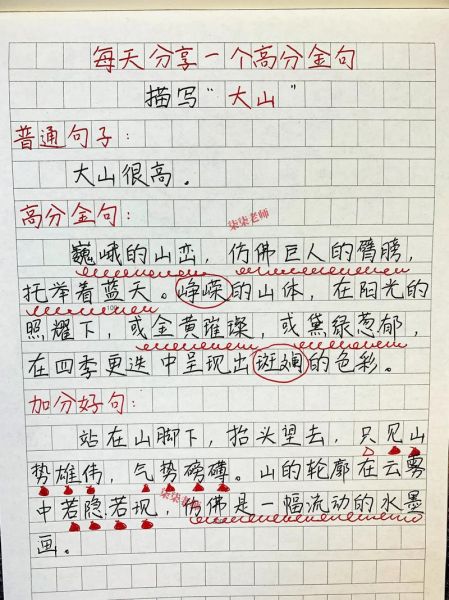 每天分享一个高分金句
描写“大山”
普通句子：
大山很高．
柒柒老师
高分金句：
巍峨的山峦，仿佛巨人的臂膀，
托举着蓝天。峥嵘的山体，在阳光的
照耀下，或金黄璀璨，或黛绿葱郁，
在四季更迭中呈现出斑斓的色彩。
加分好句：
站在山脚下，抬头望去，只见山
势雄伟，气势磅礴。山的轮廓在云雾
柒柒老师
中若隐若现，仿佛是一幅流动的水墨
画。